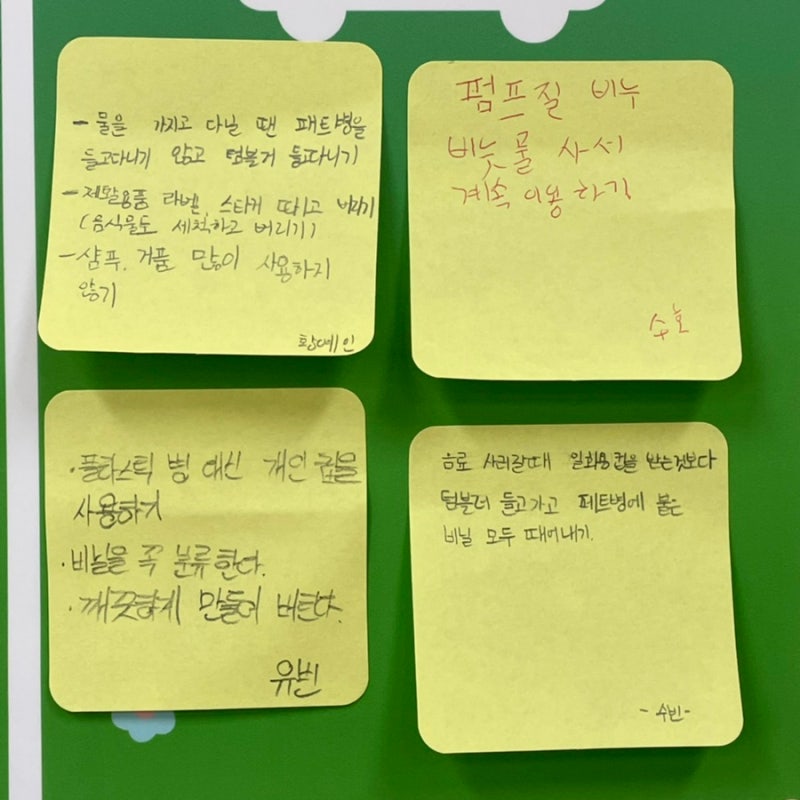 - 물을 가지고 다닐 땐 패트병을
들고다니기 않고 텀블러 들고다니기
- 재활용품 라벨, 스티커 떼고 버리기
(음식물도 세척하고 버리기)
- 샴푸, 거품 많이 사용하지
않기
황예인
펌프질 비누
비눗물 사서
계속 이용하기
수호
· 플라스틱 병 대신 개인 컵을
사용하기
· 비닐을 꼭 분류한다.
· 깨끗하게 만들어 버린다.
유빈
음료 사러갈때 일회용컵을 받는것보다
텀블더 들고가고 페트병에 붙은
비닐 모두 때어내기.
- 수빈 -